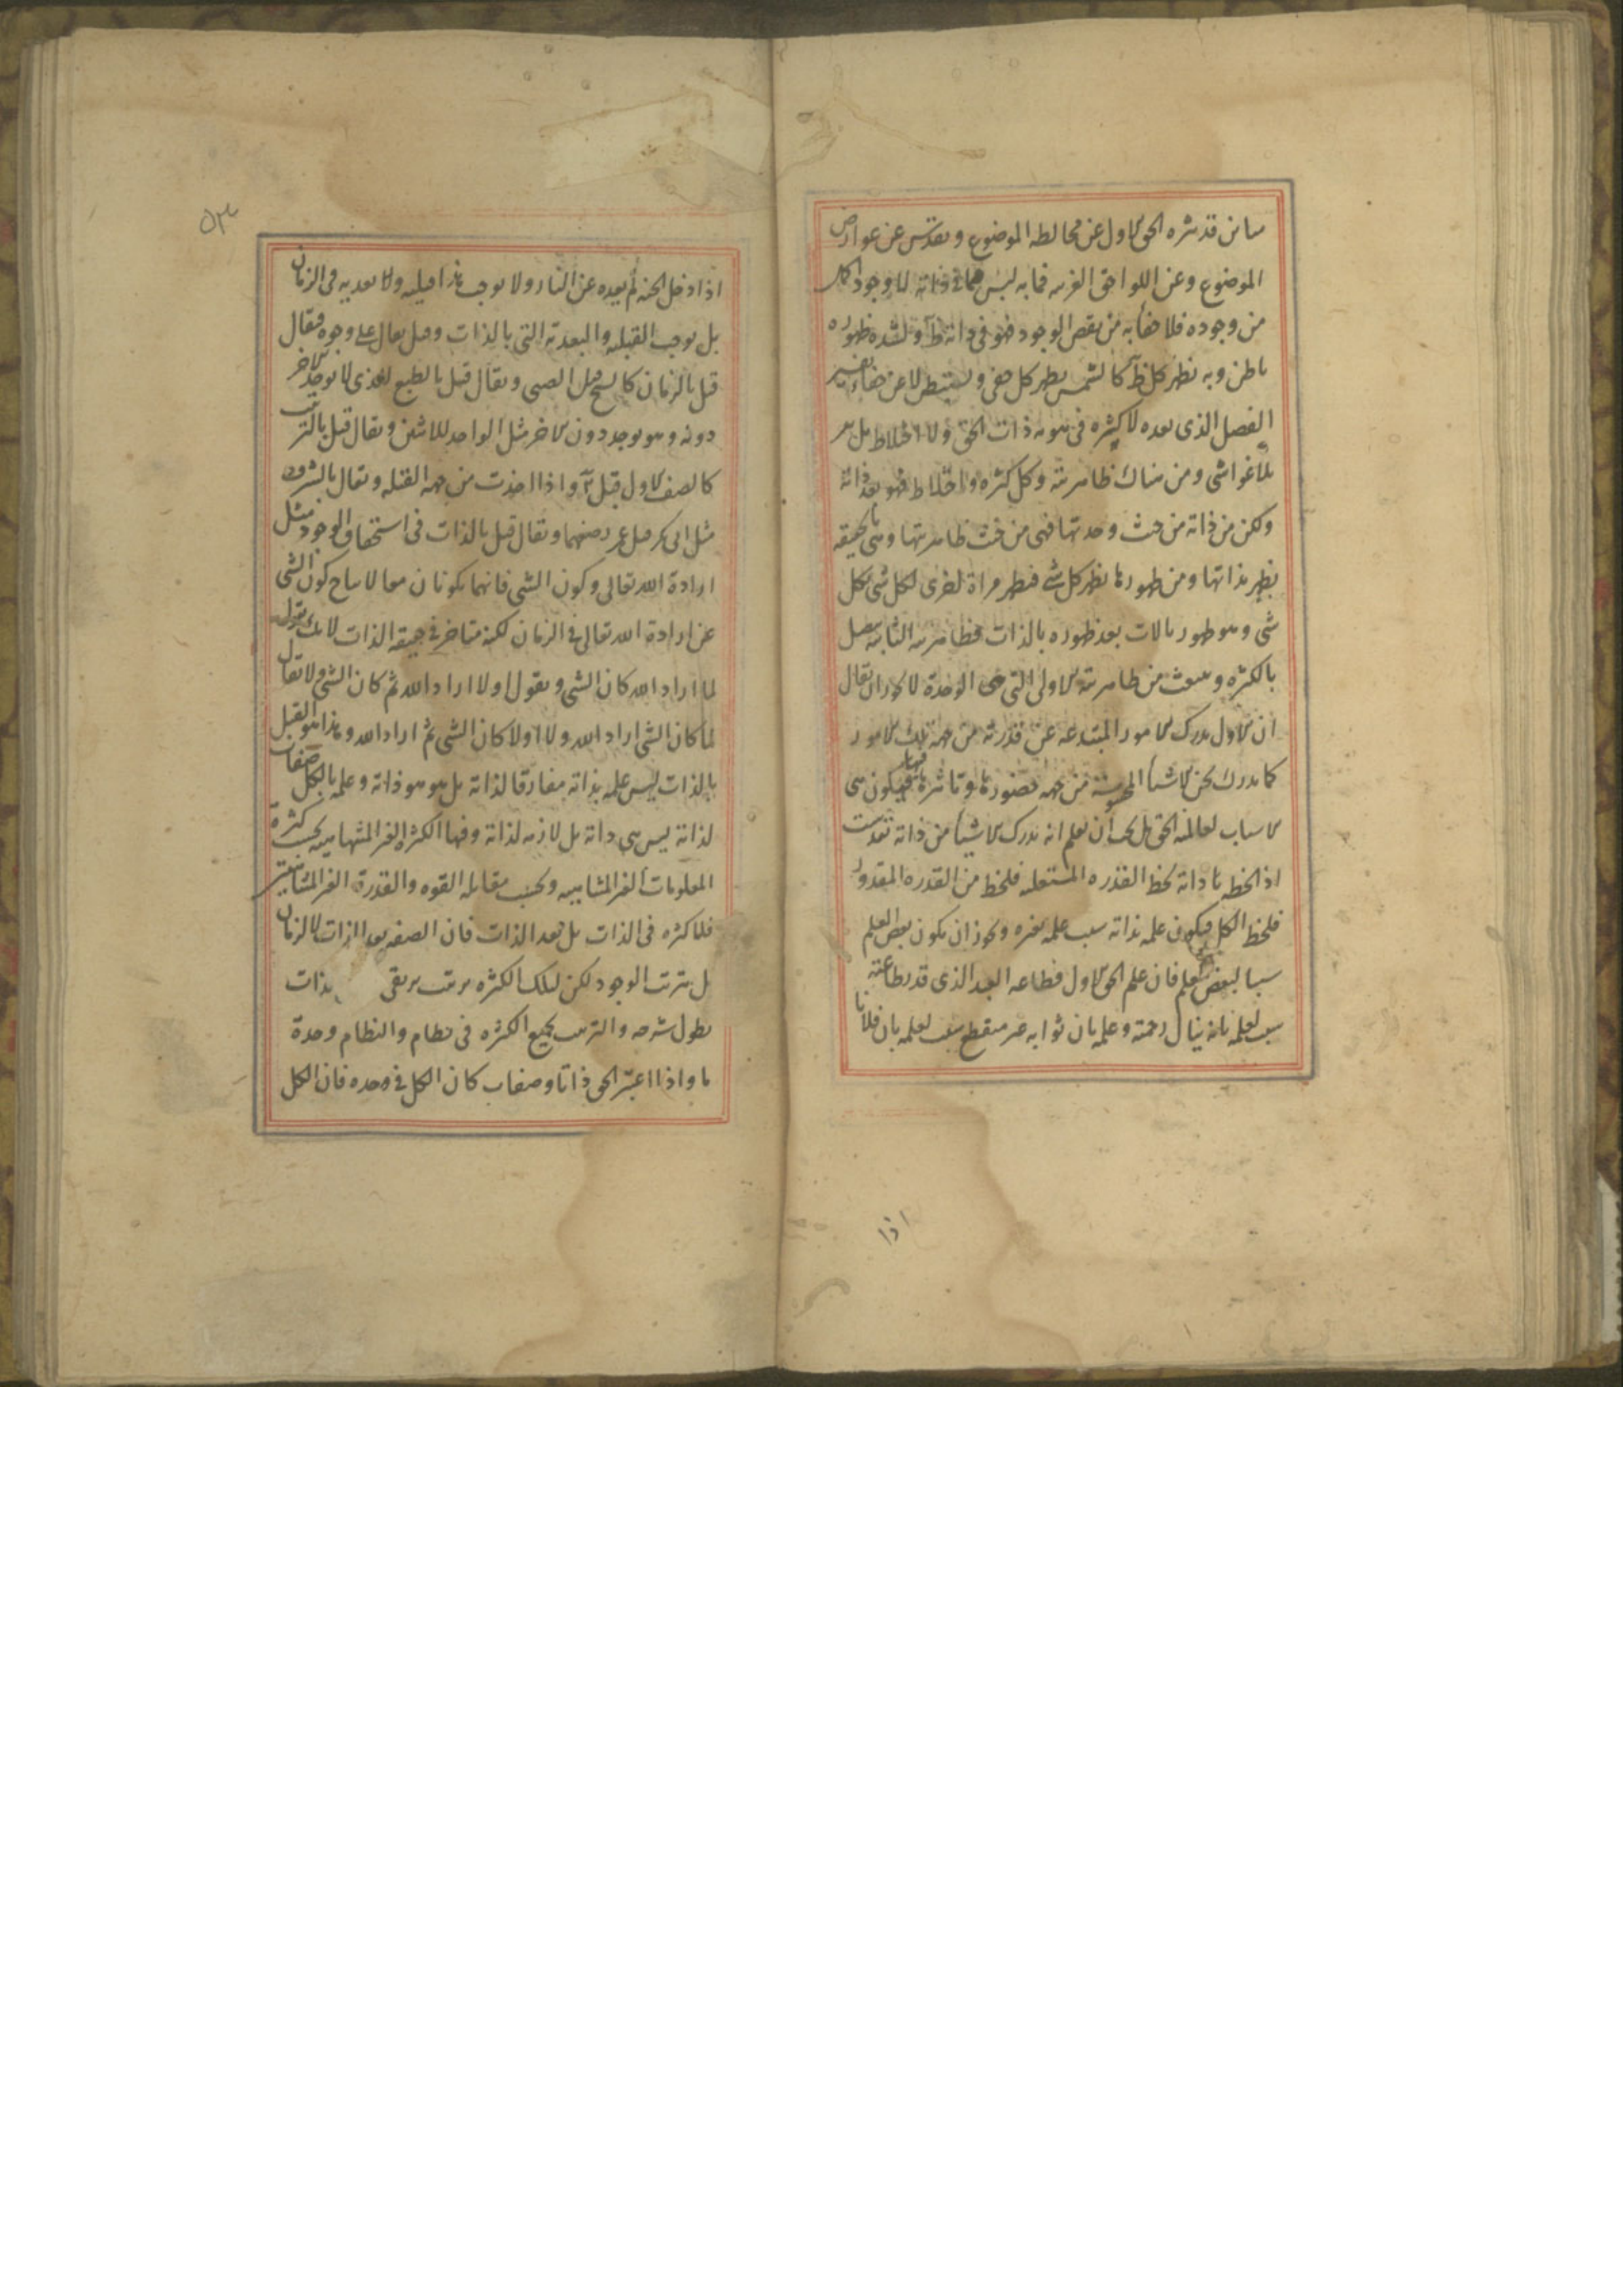 مباين قد تنزه الحق الاول عن مخالطة الموضوع وتقدس عن عوارض
الموضوع وعن اللواحق الغريبة فما به لبس في ذاته لا وجود اكمل
من وجوده فلا خفاء به من نقص الوجود فهو في ذاته ظ ولشدة ظهوره
باطن وبه يظهر كل ظ كالشمس يظهر كل خفي ويستبطن لا عن خفاء تفسير
الفصل الذي بعده لا كثرة في هوية ذات الحق ولا اختلاط بل تفرد
بلا غواشي ومن هناك ظاهريته وكل كثرة واختلاط فهو بعد ذاته
ولكن من ذاته من حيث وحدتها فهي من حيث ظاهريتها وهي بالحقيقة
يظهر بذاتها ومن ظهورها يظهر كل شي فيظهر مرة اخرى لكل شي بكل
شي وهو ظهور بالايات بعد ظهوره بالذات فظاهريته الثانية يتصل
بالكثرة وينبعث من ظاهريته الاولى التي هي الوحدة لا يجوز ان يقال
ان الاول يدرك الامور المبتدعة عن قدرته من جهة تلك الامور
كما ندرك نحن الاشياء المحسوسة من جهة حضورها وتاثيرها فينا فيكون هي
الاسباب لعالمية الحق بل يجب ان يعلم انه يدرك الاشياء من ذاته تقدست
اذا لحظ ذاته لحظ القدرة المستعلية فلحظ من القدرة المقدور
فلحظ الكل فيكون علمه بذاته سبب علمه بغيره ويجوز ان يكون بعض العلم
سببا لبعض العلم فان علم الحق الاول فطاعة العبد الذي قدر طاعته
سبب لعلمه بانه ينال رحمته وعلمه بان ثوابه غير منقطع سبب لعلمه بان فلانا
اذا
٥٣
اذا دخل الجنة لم يعده عن النار ولا يوجب هذا قبلية ولا بعدية في الزمان
بل يوجب القبلية والبعدية التي بالذات وقبل يقال على وجوه فيقال
قبل بالزمان كالشيخ قبل الصبي ويقال قبل بالطبع للذي لا يوجد الاخر
دونه وهو يوجد دون الاخر مثل الواحد للاثنين ويقال قبل بالترتيب
كالصف الاول قبل الثاني اذا اخذت من جهة القبلة ويقال بالشرف
مثل ابي بكر قبل عمر رضي عنهما ويقال قبل بالذات في استحقاق الوجود مثل
ارادة الله تعالى وكون الشي فانهما يكونان معا لا يتاخر كون الشي
عن ارادة الله تعالى في الزمان لكنه متاخر في حقيقة الذات لانك تقول
لما اراد الله كان الشي وتقول اولا اراد الله ثم كان الشي ولا تقول
لما كان الشي اراد الله ولا كان الشي ثم اراد الله وهذا هو القبل
بالذات ليس علمه بذاته مفارقا لذاته بل هو هو ذاته وعلمه بالكل صفات
لذاته ليس هي ذاته بل لازمة لذاته وفيها الكثرة الغير المتناهية بحسب كثرة
المعلومات الغير المتناهية وبحسب مقابلة القوة والقدرة الغير المتناهية
فلا كثرة في الذات بل بعد الذات فان الصفة بعد الذات لا بالزمان
بل بترتب الوجود لكن لتلك الكثرة ترتيب يرتقي به الى الذات
يطول شرحه والترتيب يجمع الكثرة في نظام والنظام وحدة
ما واذا اعتبر الحق ذاتا وصفات كان الكل في وحدة فان الكل